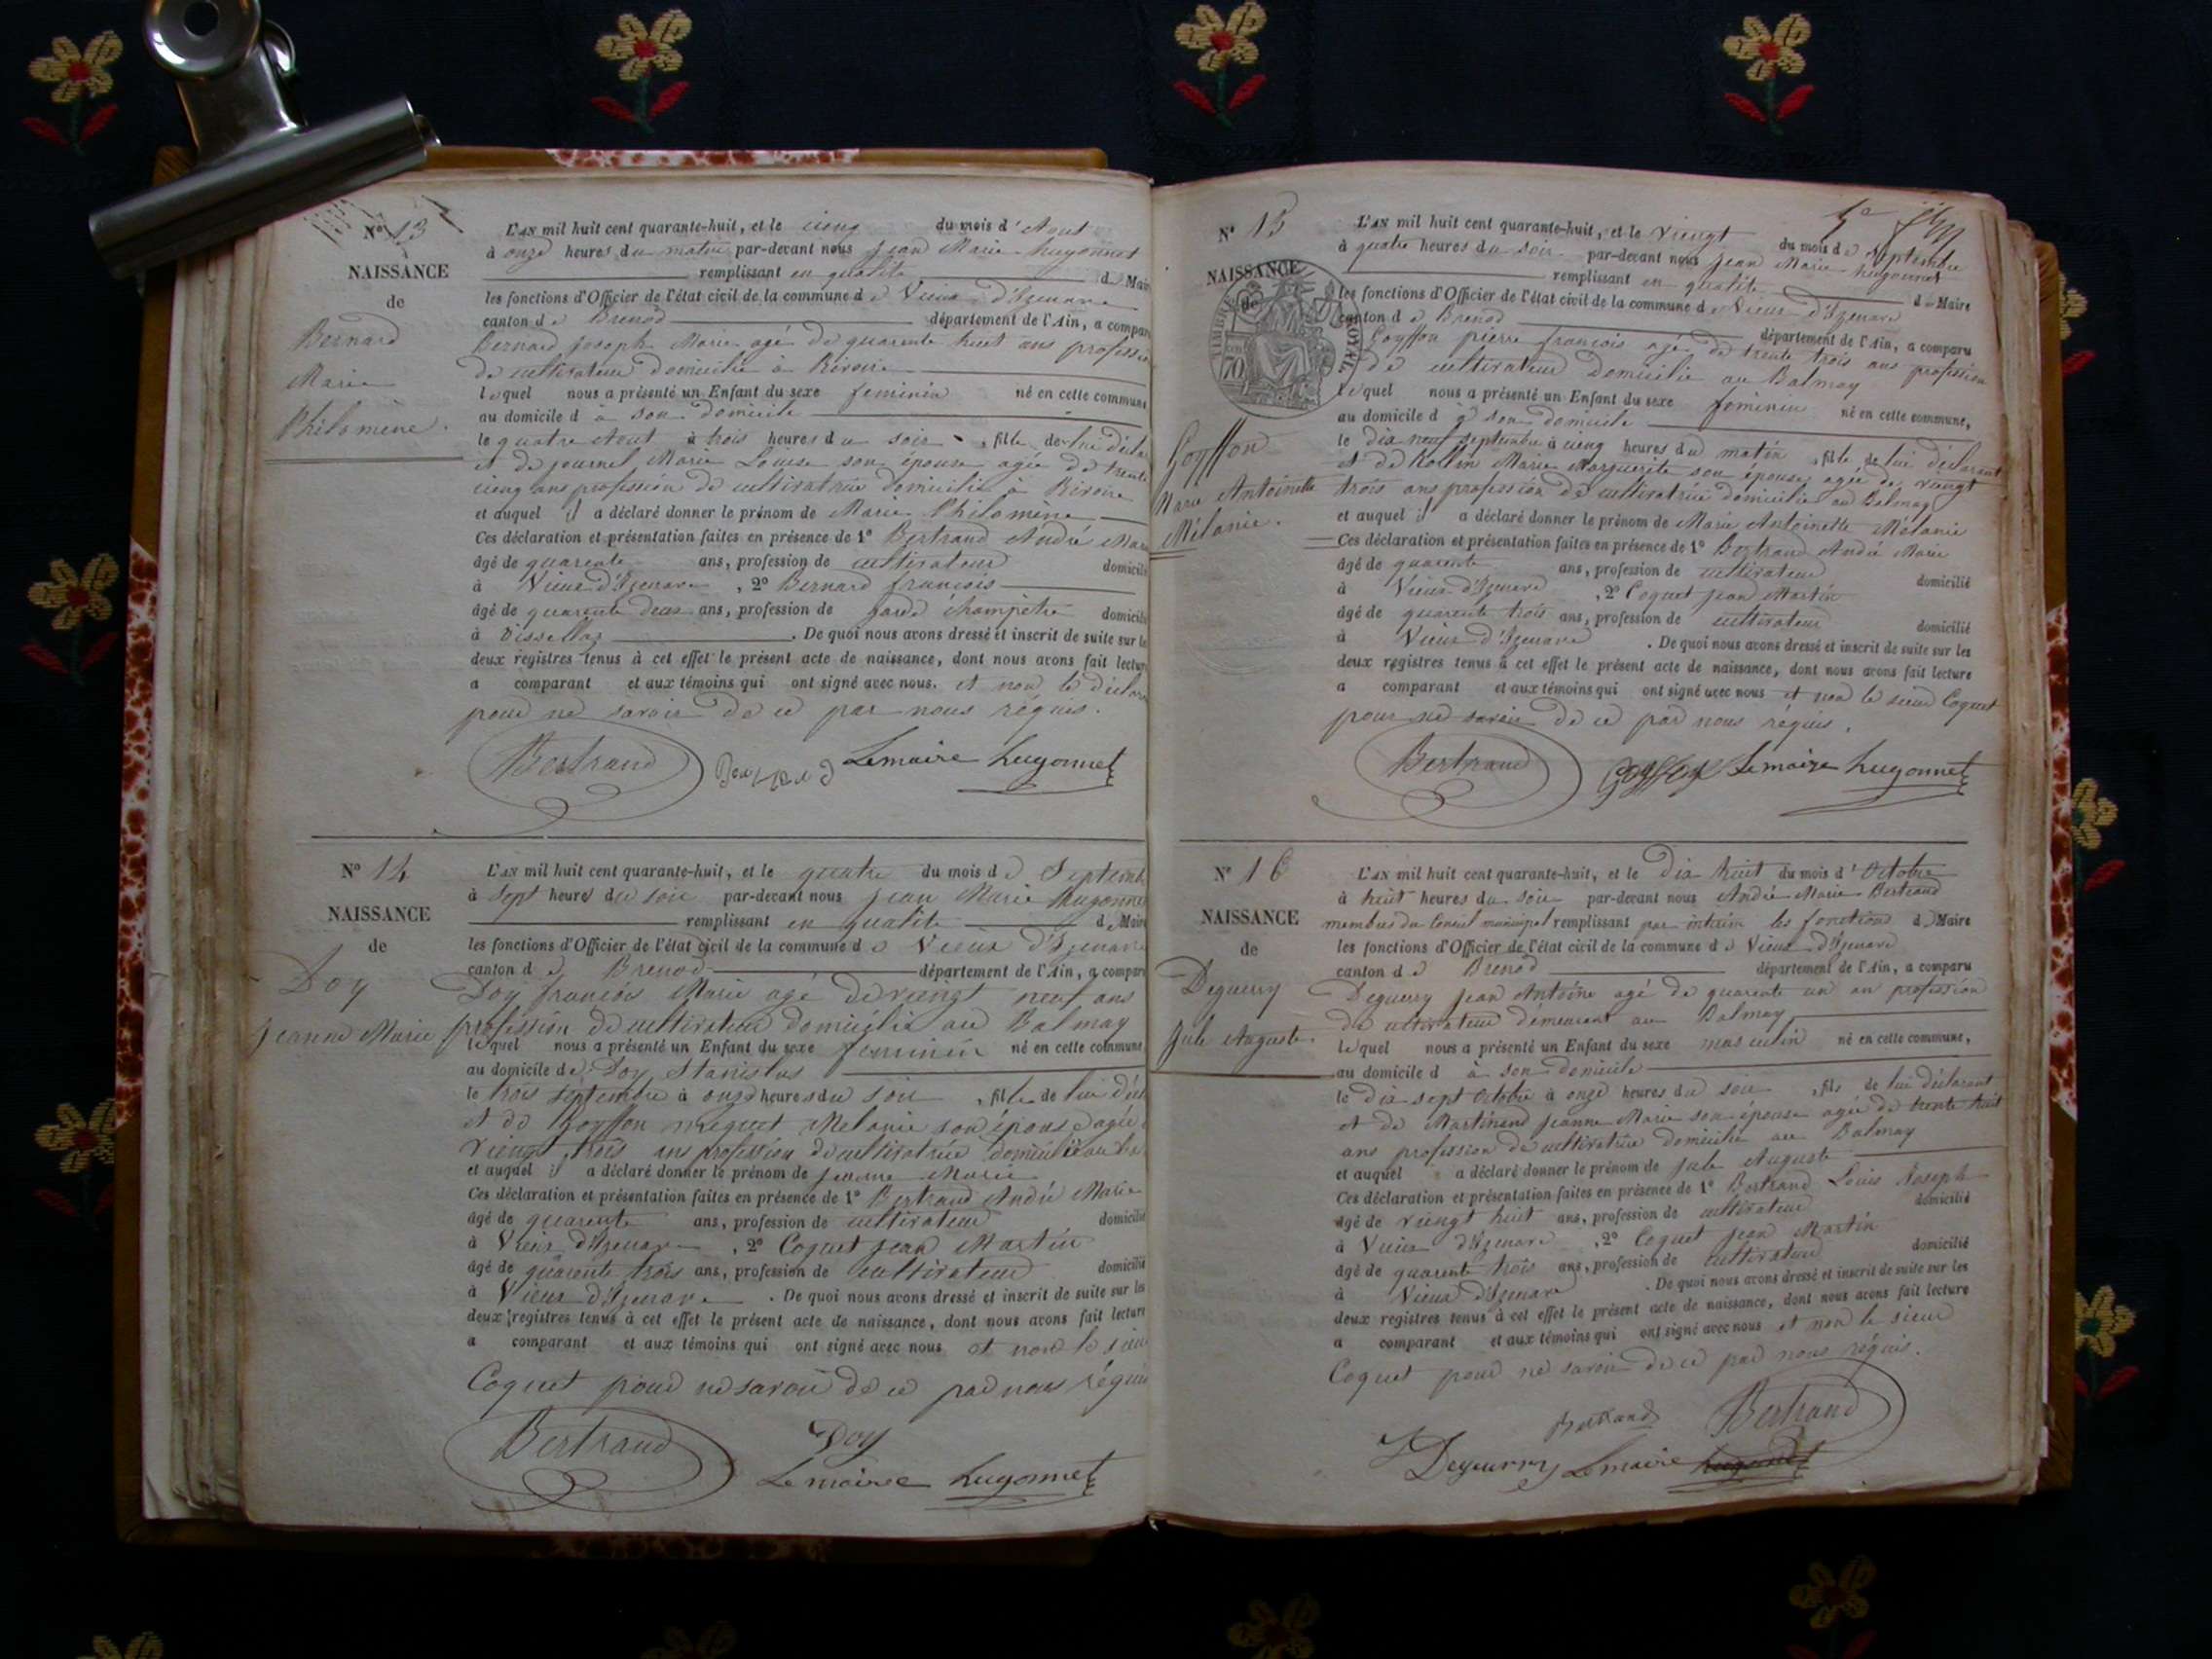 N° 13
NAISSANCE
de
Bernard
Marie
Philomène.
L'AN mil huit cent quarante-huit, et le cienq du mois d'Aout
à onze heures du matin par-devant nous Jean Marie hugonnet
remplissant en qualité de Mair
les fonctions d'Officier de l'état civil de la commune de Vieux d'Izenave
canton de Brenod département de l'Ain, a compar
Bernard Joseph Marie agé de quarente huit ans professio
de cultivateur domicilié à Rivoire
lequel nous a présenté un Enfant du sexe feminin né en cette commune
au domicile d à son domicile
le quatre Aout à trois heures du soir, fille de lui décla
et de journel Marie Louise son épouse agée de trente
cienq ans profession de cultivatrice domicilié à Rivoire
et auquel il a déclaré donner le prénom de Marie Philomène
Ces déclaration et présentation faites en présence de 1° Bertrand André Mari
âgé de quarente ans, profession de cultivateur domicilié
à Vieux d'Izenave, 2° Bernard francois
âgé de quarente deux ans, profession de garde champetre domicilié
à . De quoi nous avons dressé et inscrit de suite sur le
deux registres tenus à cet effet le présent acte de naissance, dont nous avons fait lecture
a comparant et aux témoins qui ont signé avec nous. et non le déclar
pour ne savoir de ce par nous réquis.
Bertrand Bernard Lemaire hugonnet
N° 14
NAISSANCE
de
Doy
Jeanne Marie
L'AN mil huit cent quarante-huit, et le quatre du mois de Septemb
à sept heures du soir par-devant nous Jean Marie hugonnet
remplissant en qualité de Maire
les fonctions d'Officier de l'état civil de la commune de Vieux d'Izenave
canton de Brenod département de l'Ain, a compar
Doy francois Marie agé de vieingt neuf ans
profession de cultivateur domicilié au Balmay
lequel nous a présenté un Enfant du sexe feminin né en cette commune
au domicile de Doy Stanislas
le trois septembre à onze heures du soir, fille de lui décl
et de Goyffon Melanie son épouse agée
vieingt trois ans profession de cultivatrice domicilié au Bal
et auquel il a déclaré donner le prénom de Jeanne Marie
Ces déclaration et présentation faites en présence de 1° Bertrand André Marie
âgé de quarente ans, profession de cultivateur domicilié
à Vieux d'Izenave, 2° Coquet Jean Martin
âgé de quarente trois ans, profession de cultivateur domicilié
à Vieux d'Izenave. De quoi nous avons dressé et inscrit de suite sur les
deux registres tenus à cet effet le présent acte de naissance, dont nous avons fait lecture
a comparant et aux témoins qui ont signé avec nous et non le sieur
Coquet pour ne savoir de ce par nous réquis
Bertrand Doy
Lemaire hugonnet
N° 15
NAISSANCE
de
TIMBRE ROYAL
70
Goyffon
Marie Antoinette
Mélanie.
L'AN mil huit cent quarante-huit, et le vieingt du mois de Septembre
à quatre heures du soir par-devant nous Jean Marie hugonnet
remplissant en qualité de Maire
les fonctions d'Officier de l'état civil de la commune de Vieux d'Izenave
canton de Brenod département de l'Ain, a comparu
Goyffon pierre francois agé de trente trois ans profession
de cultivateur Domicilié au Balmay
lequel nous a présenté un Enfant du sexe feminin né en cette commune,
au domicile d à son domicile
le dix neuf septembre à cienq heures du matin, fille de lui déclarant
et de Rollin Marie Marguerite son épouse agée de vieingt
trois ans profession de cultivatrice domicilié au Balmay
et auquel il a déclaré donner le prénom de Marie Antoinette Mélanie
Ces déclaration et présentation faites en présence de 1° Bertrand André Marie
âgé de quarente ans, profession de cultivateur domicilié
à Vieux d'Izenave, 2° Coquet Jean Martin
âgé de quarente trois ans, profession de cultivateur domicilié
à Vieux d'Izenave. De quoi nous avons dressé et inscrit de suite sur les
deux registres tenus à cet effet le présent acte de naissance, dont nous avons fait lecture
a comparant et aux témoins qui ont signé avec nous et non le sieur Coquet
pour ne savoir de ce par nous réquis.
Bertrand Goyffon Lemaire hugonnet
N° 16
NAISSANCE
de
Deguerry
Jule Auguste.
L'AN mil huit cent quarante-huit, et le Dix huit du mois d'Octobre
à huit heures du soir par-devant nous André Marie Bertrand
membre du Conseil municipal remplissant par intérim les fonctions de Maire
les fonctions d'Officier de l'état civil de la commune de Vieux d'Izenave
canton de Brenod département de l'Ain, a comparu
Deguerry Jean Antoine agé de quarente un an profession
de cultivateur demeurant au Balmay
lequel nous a présenté un Enfant du sexe masculin né en cette commune,
au domicile d à son domicile
le dix sept Octobre à onze heures du soir, fils de lui déclarant
et de Martinand Jeanne Marie son épouse agée de trente huit
ans profession de cultivatrice domicilié au Balmay
et auquel a déclaré donner le prénom de Jule Auguste
Ces déclaration et présentation faites en présence de 1° Bertrand Louis Joseph
âgé de vieingt huit ans, profession de cultivateur domicilié
à Vieux d'Izenave, 2° Coquet Jean Martin
âgé de quarente trois ans, profession de cultivateur domicilié
à Vieux d'Izenave. De quoi nous avons dressé et inscrit de suite sur les
deux registres tenus à cet effet le présent acte de naissance, dont nous avons fait lecture
a comparant et aux témoins qui ont signé avec nous et non le sieur
Coquet pour ne savoir de ce par nous réquis.
Bertrand Bertrand
Deguerry Lemaire hugonnet